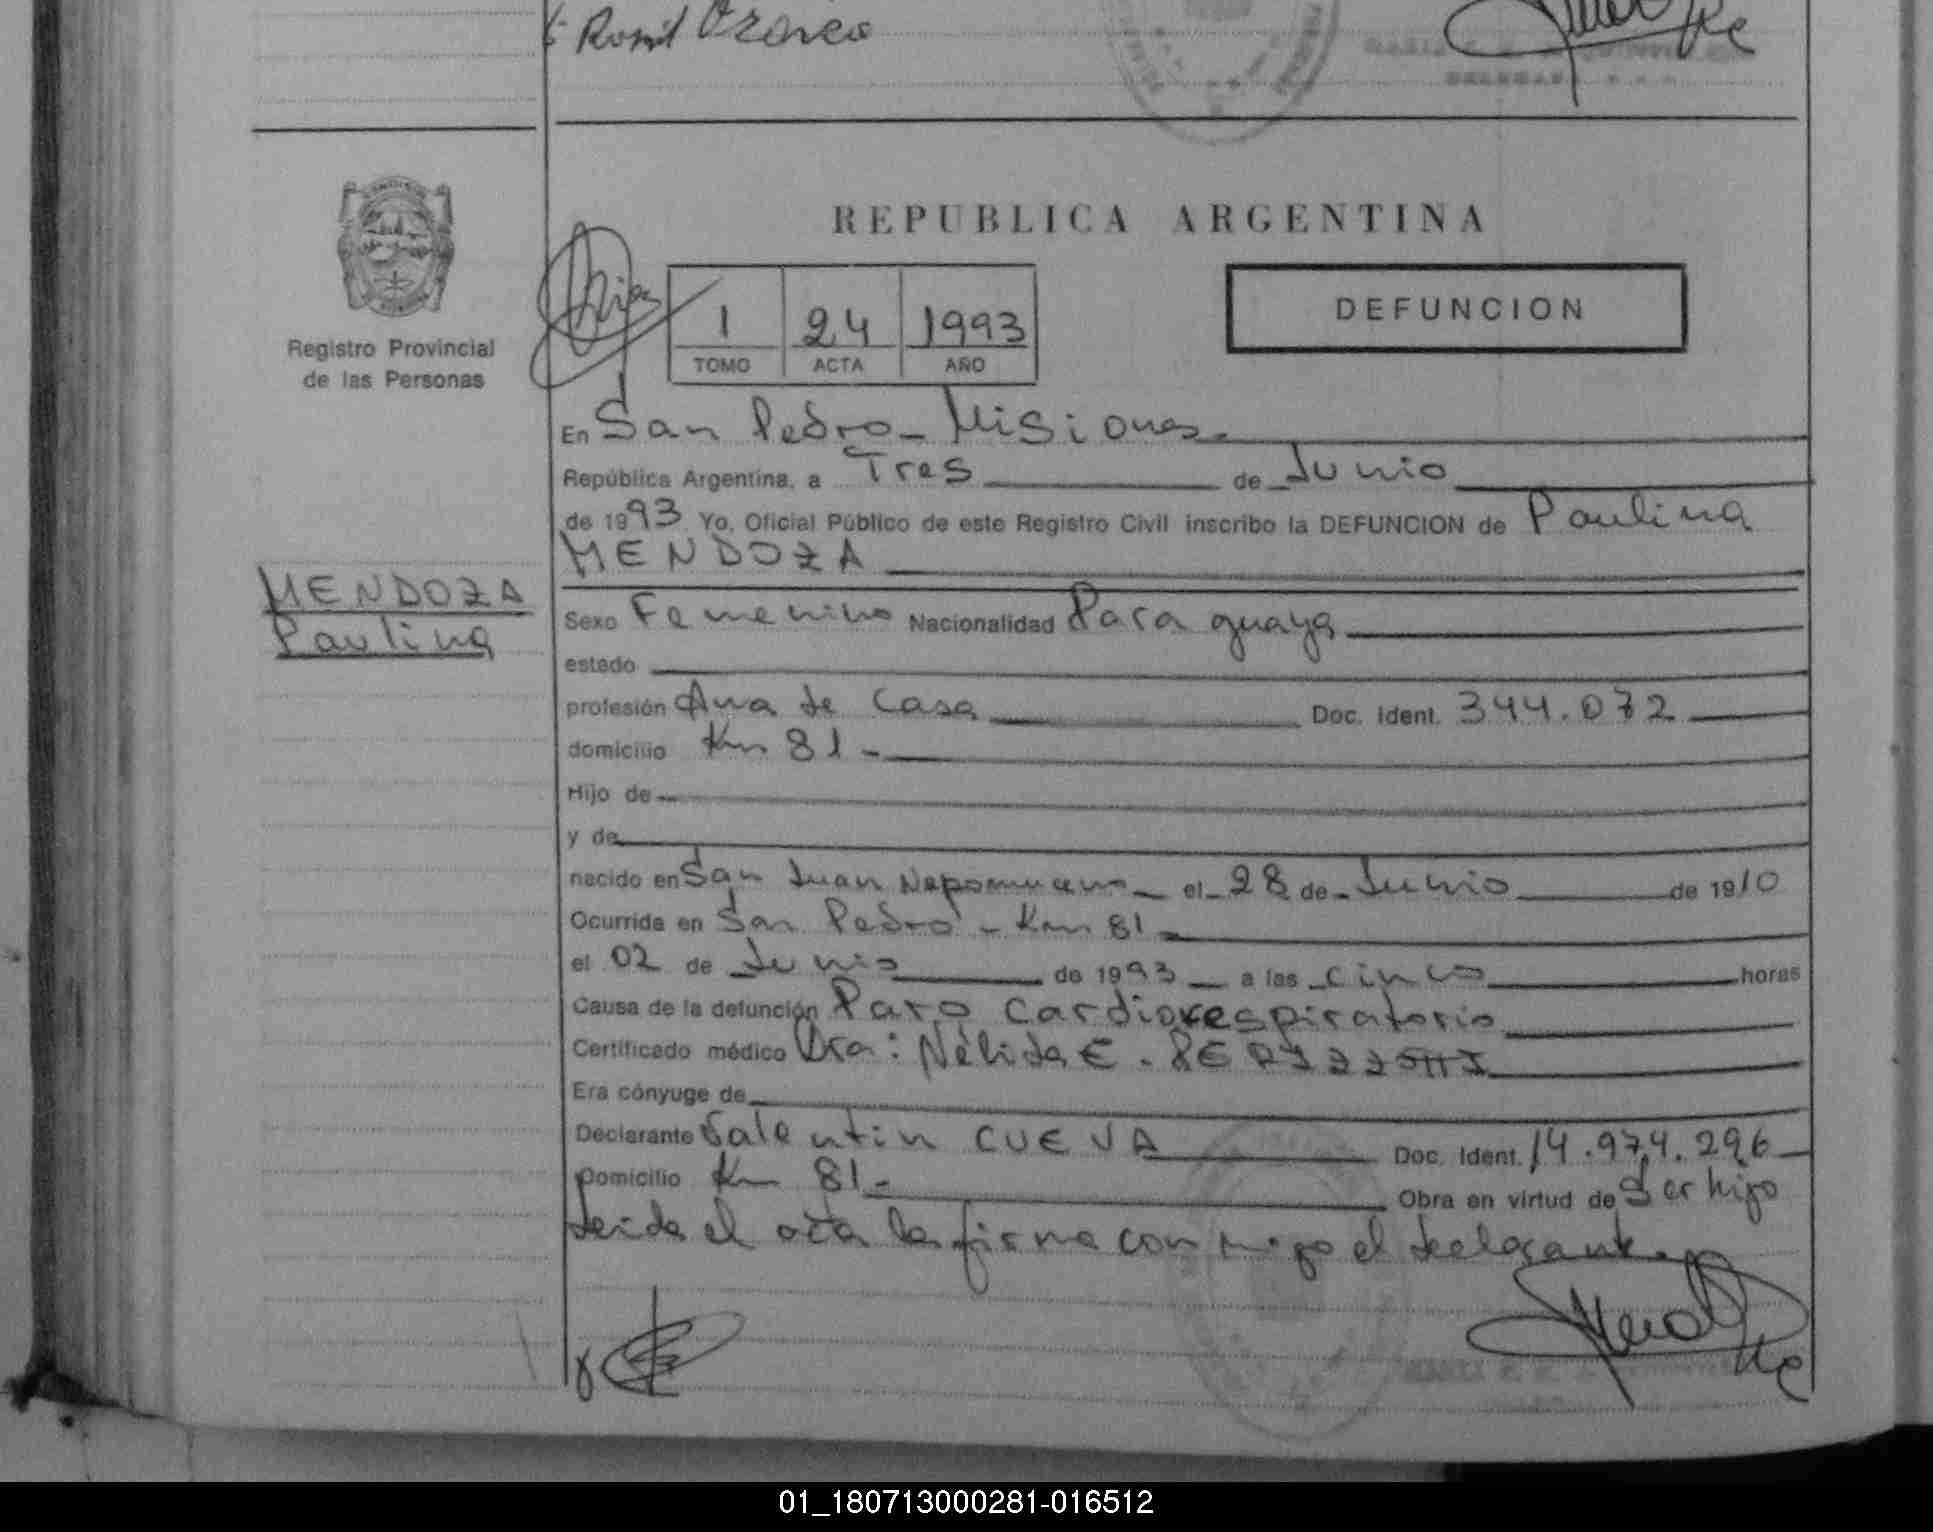 Orozco
REPUBLICA ARGENTINA
1 24 1993
TOMO ACTA AÑO
DEFUNCION
Registro Provincial
de las Personas
En San Pedro - Misiones -
República Argentina, a Tres de Junio
de 1993 Yo, Oficial Público de este Registro Civil inscribo la DEFUNCION de Paulina
MENDOZA
MENDOZA
Paulina
Sexo Femenino Nacionalidad Paraguaya
estado
profesión Ama de Casa Doc. Ident. 344.072
domicilio Km 81 -
Hijo de
y de
nacido en San Juan Nepomuceno el 28 de Junio de 1910
Ocurrida en San Pedro - Km 81 -
el 02 de Junio de 1993 a las cinco horas
Causa de la defunción Paro cardiorespiratorio
Certificado médico Dra: Nélida E.
Era cónyuge de
Declarante Valentin CUEVA Doc. Ident. 14.974.296
Domicilio Km 81 - Obra en virtud de Ser hijo
Leida el acta la firma conmigo el declarante.
01_180713000281-016512